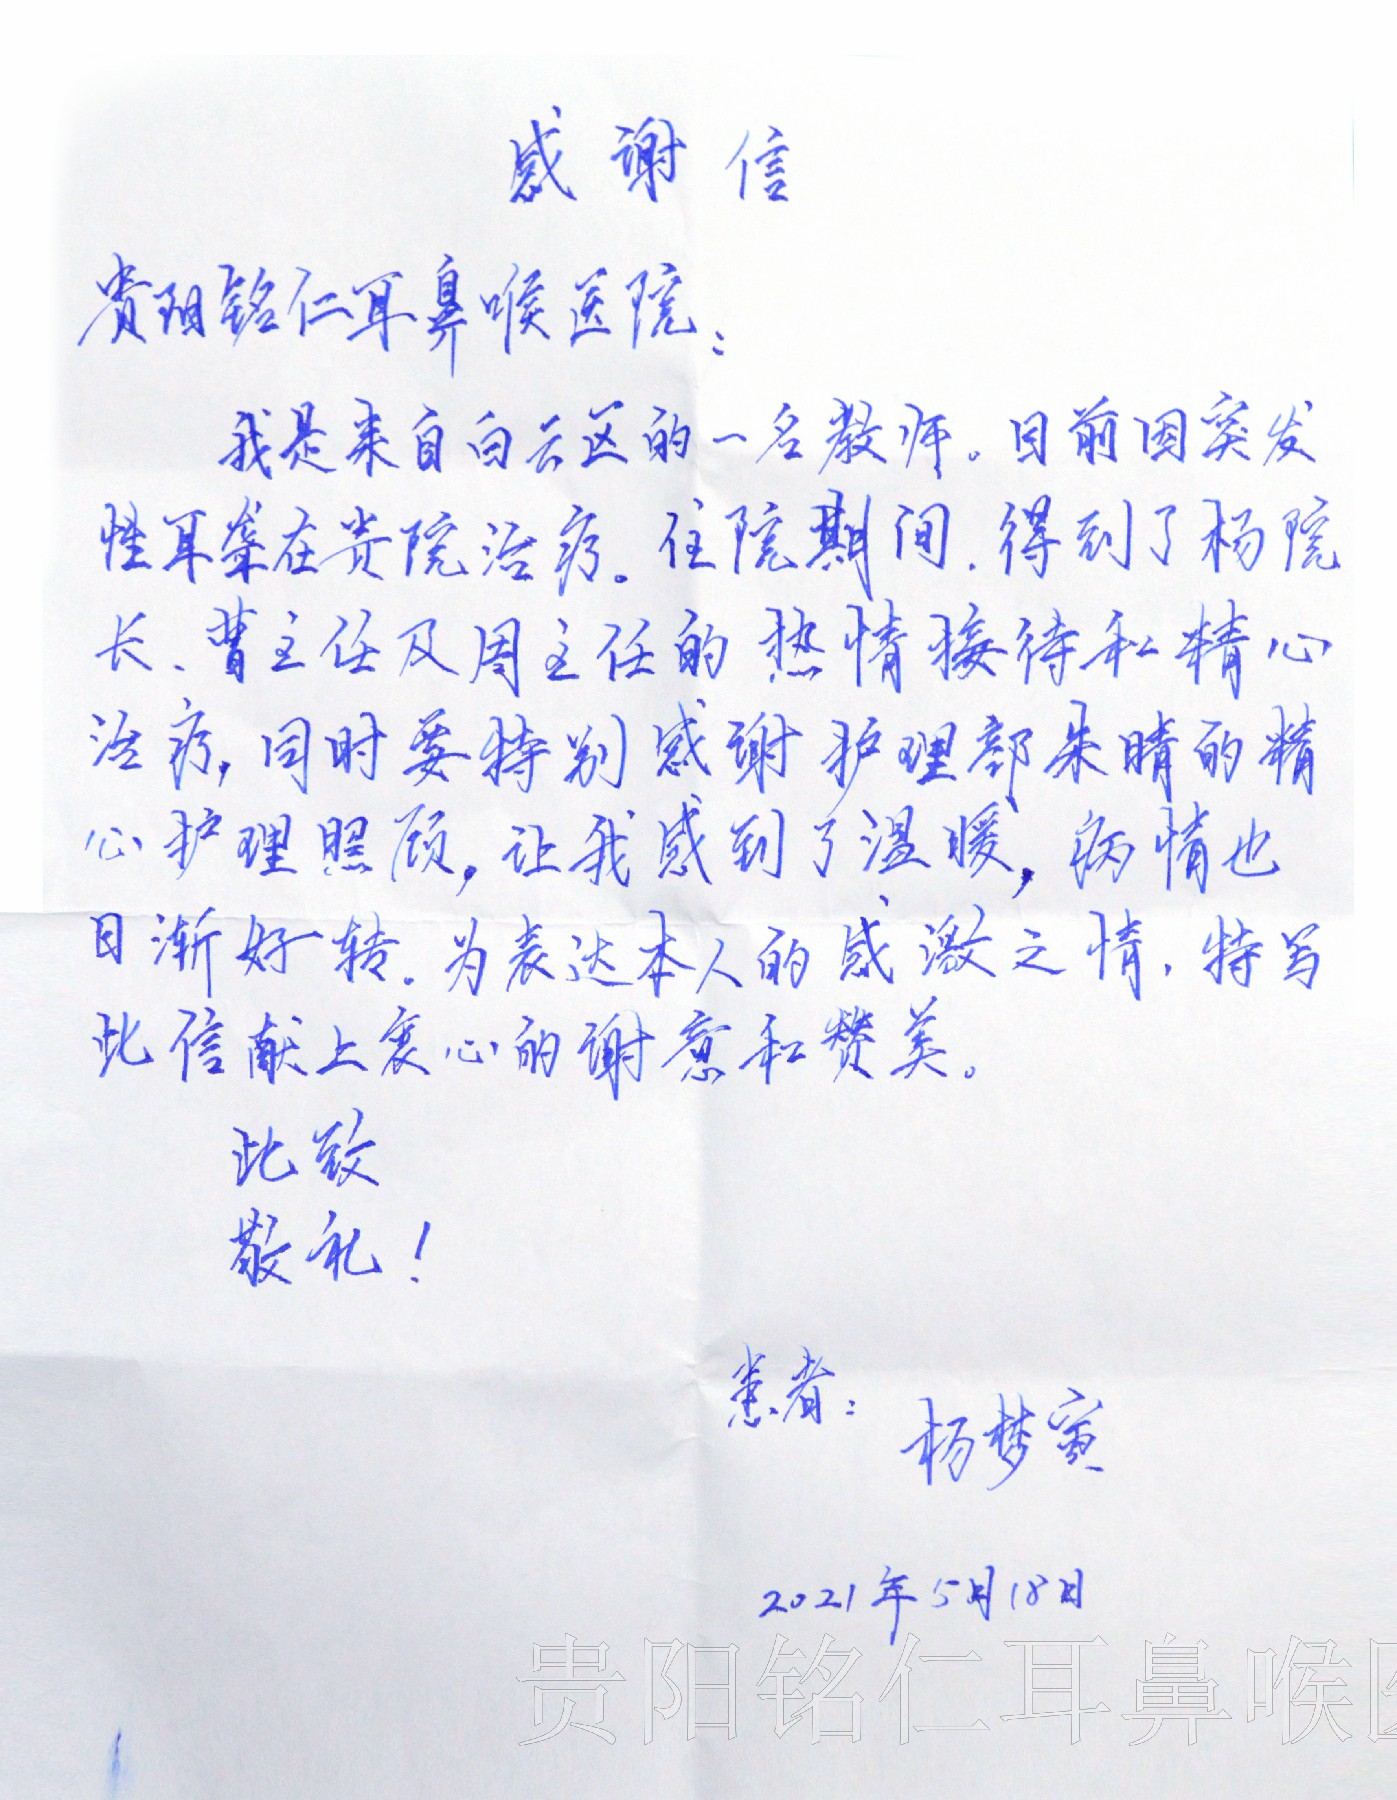 感谢信
贵阳铭仁耳鼻喉医院：
我是来自白云区的一名教师。日前因突发
性耳聋在贵院治疗。住院期间，得到了杨院
长、曹主任及周主任的热情接待和精心
治疗，同时要特别感谢护理部朱晴的精
心护理照顾，让我感到了温暖，病情也
日渐好转。为表达本人的感激之情，特写
此信献上衷心的谢意和赞美。
此致
敬礼！
患者：杨梦寅
2021年5月18日
贵阳铭仁耳鼻喉医